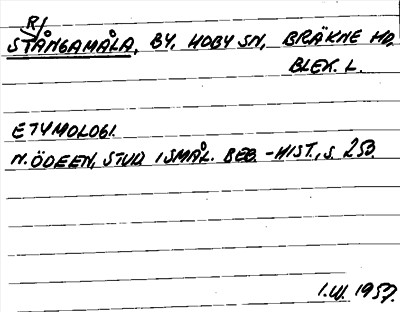 R/
STÅNGAMÅLA, BY, HOBY SN, BRÄKNE HD,
BLEK. L.
ETYMOLOGI.
N. ÖDEEN, STUD I SMÅL. BEB.-HIST., S. 253.
I.W. 1957.